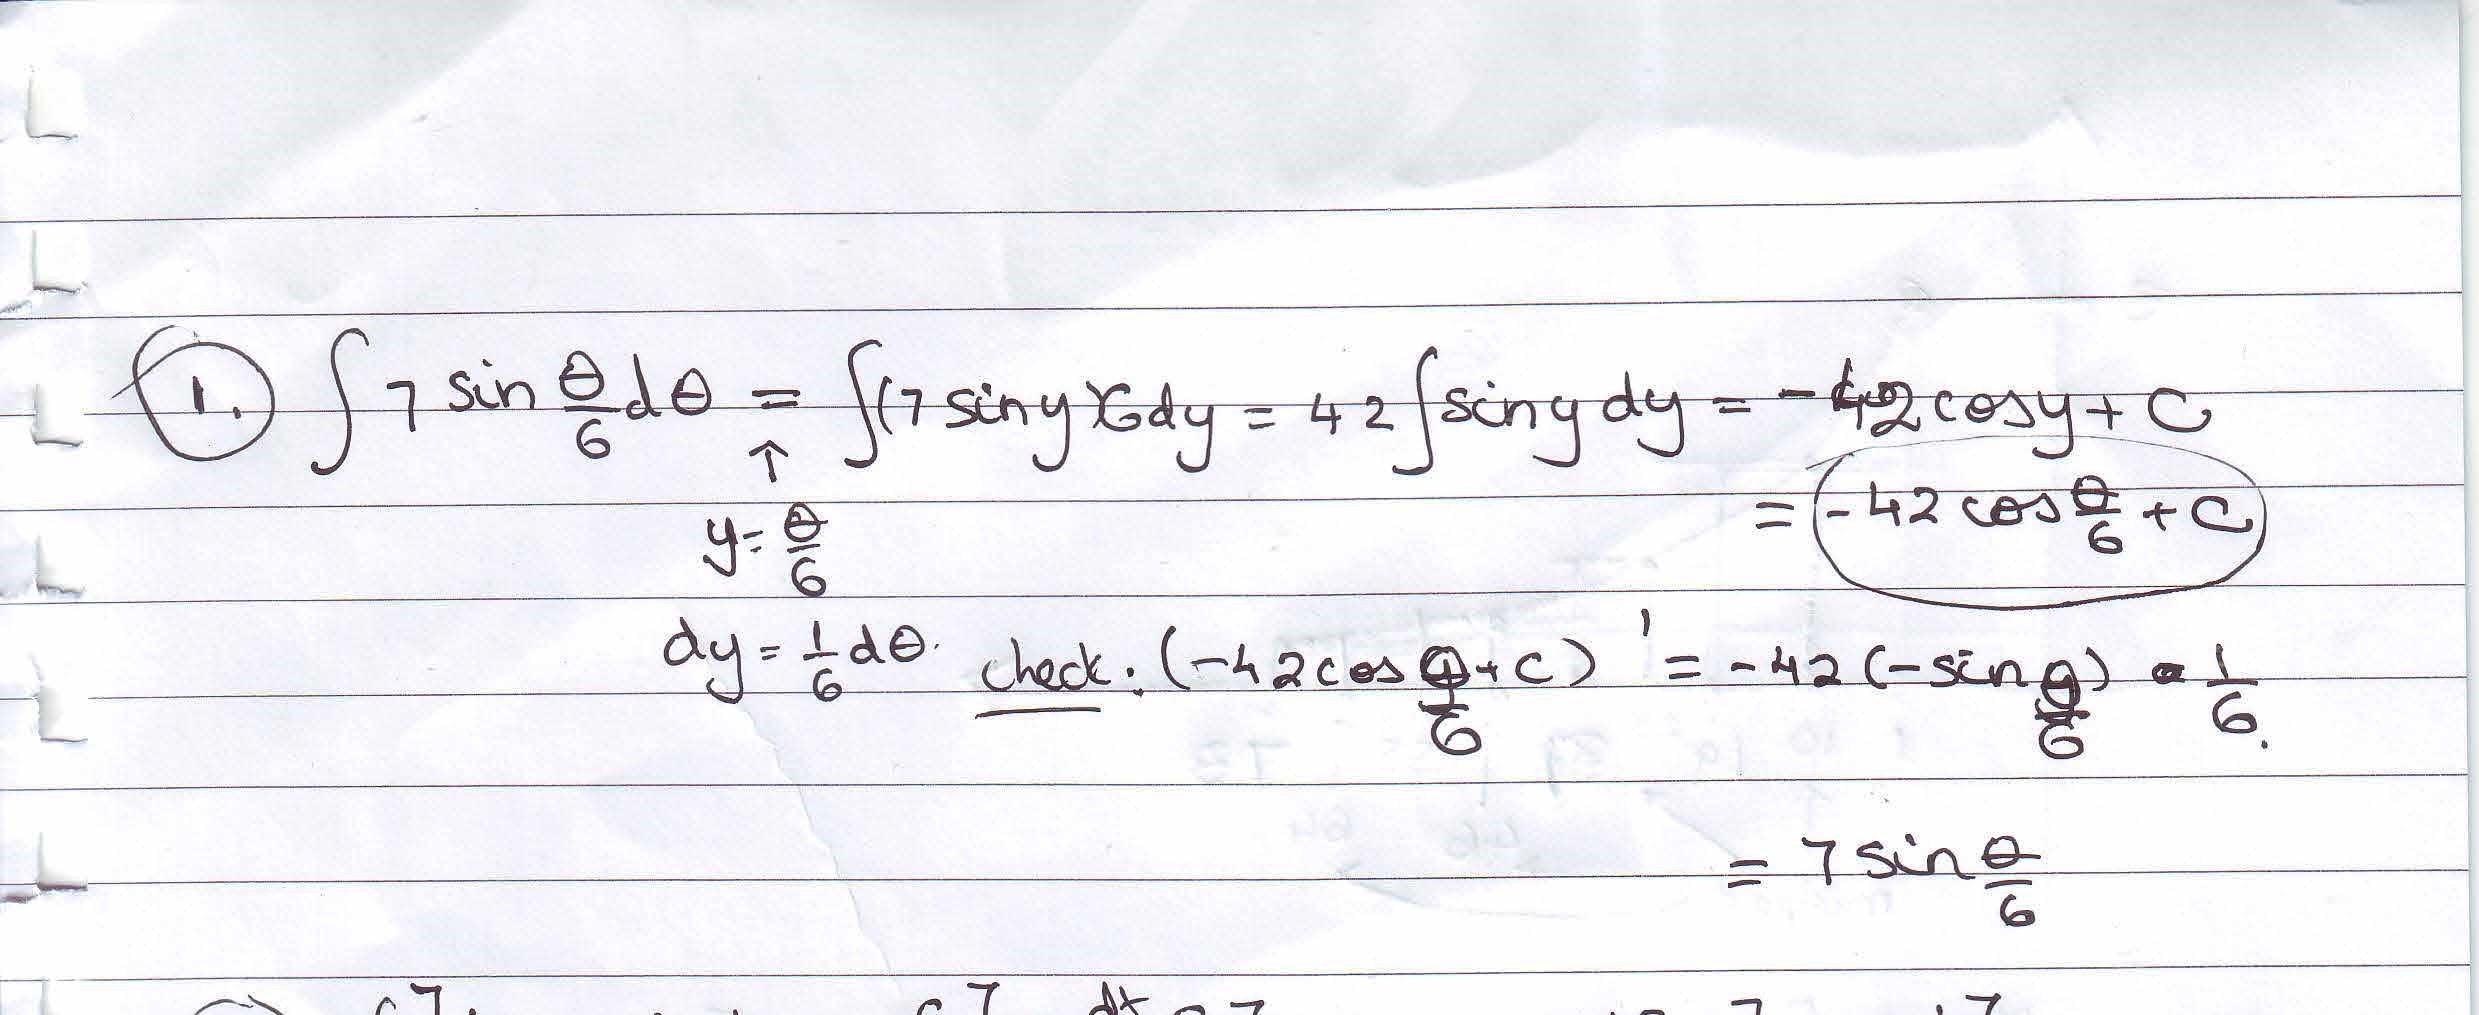 1. ∫ 7 sin θ/6 dθ = ∫(7 sin y)(6dy = 42 ∫ sin y dy = -42 cos y + C
↑ = -42 cos θ/6 + C
y = θ/6
dy = 1/6 dθ. check: (-42 cos θ/6 + C)' = -42 (-sin θ/6) · 1/6.
= 7 sin θ/6